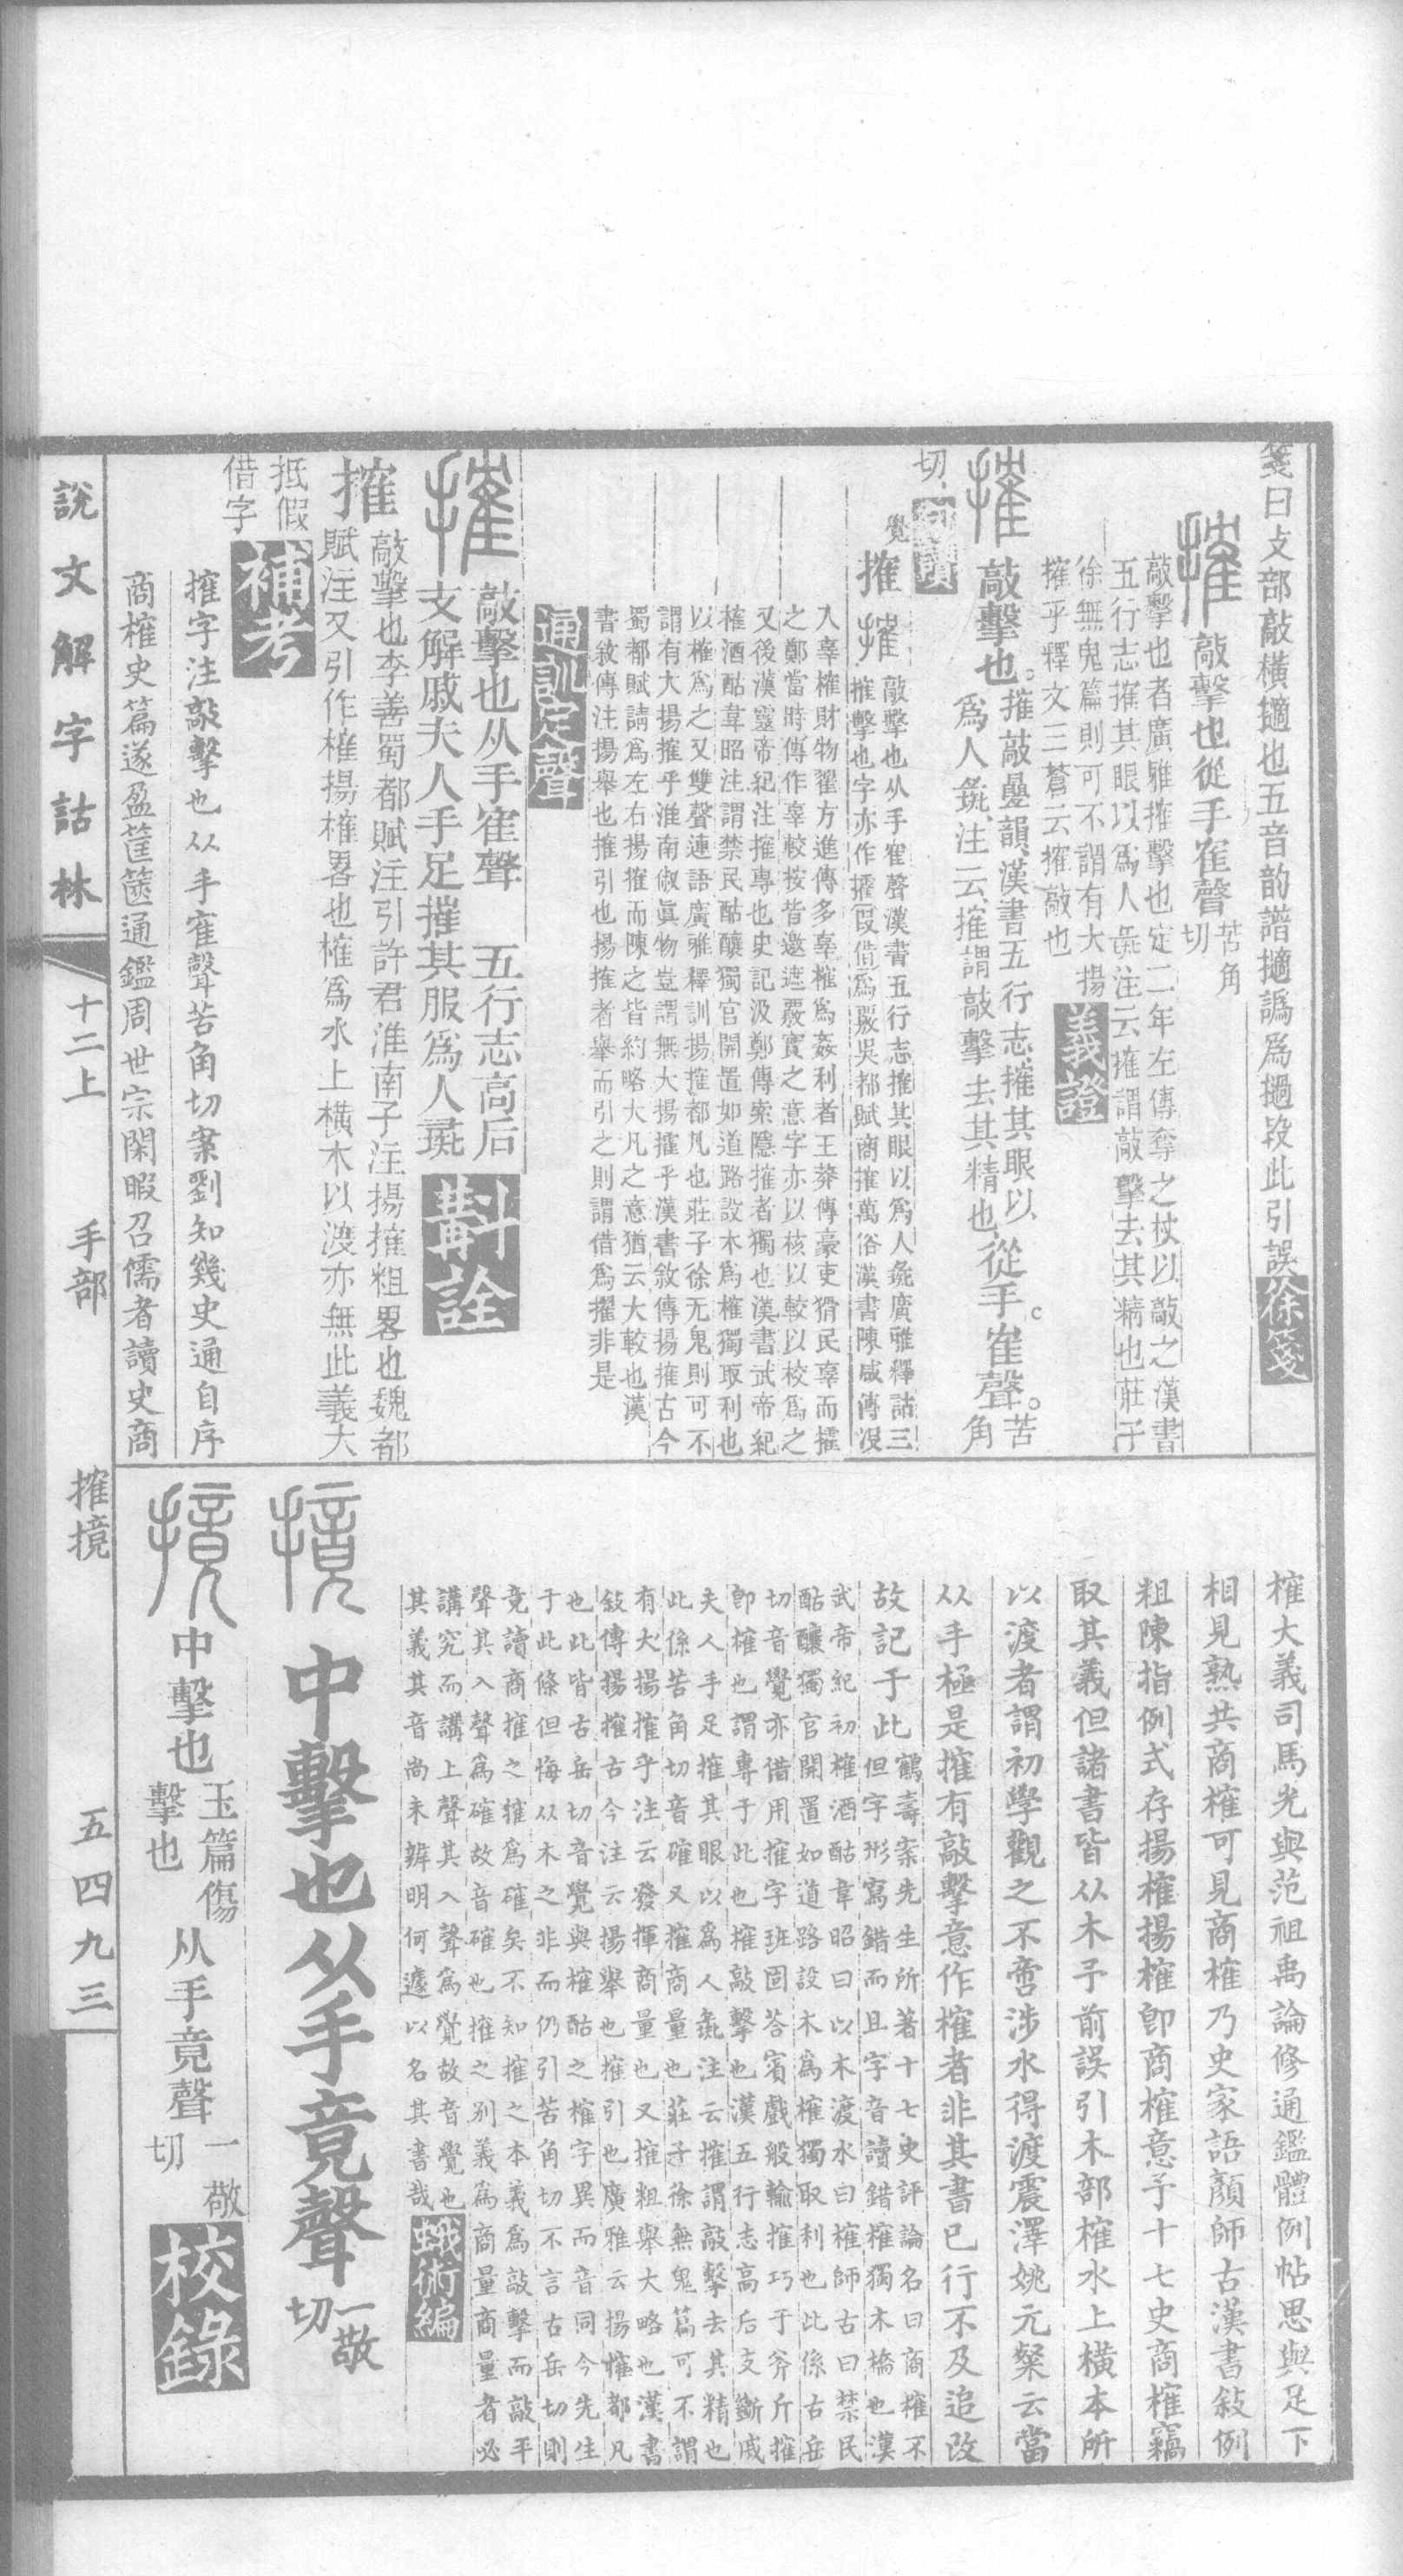 箋曰攴部敲橫擿也五音韵譜擿譌爲撾段此引誤徐箋
搉敲擊也從手隺聲苦角切
敲擊也者廣雅搉擊也定二年左傳奪之杖以敲之漢書
五行志搉其眼以爲人彘注云搉謂敲擊去其精也莊子
徐無鬼篇則可不謂有大揚
搉乎釋文三蒼云搉敲也
義證
搉敲擊也。搉敲疊韻漢書五行志搉其眼以
爲人彘注云搉謂敲擊去其精也從手。隺聲。苦角
切句讀
覺搉搉敲擊也从手隺聲漢書五行志搉其眼以爲人彘廣雅釋詁三
搉擊也字亦作㩁叚借爲覈吳都賦商搉萬俗漢書陳咸傳沒
入辜榷財物翟方進傳多辜榷爲姦利者王莽傳豪吏猾民辜而㩁
之鄭當時傳作辜較按皆邀遮覈實之意字亦以核以較以校爲之
又後漢靈帝紀注搉專也史記汲鄭傳索隱搉者獨也漢書武帝紀
榷酒酤韋昭注謂禁民酤釀獨官開置如道路設木爲榷獨取利也
以榷爲之又雙聲連語廣雅釋訓揚搉都凡也莊子徐无鬼則可不
謂有大揚搉乎淮南俶眞物豈謂無大揚㩁乎漢書敘傳揚搉古今
蜀都賦請爲左右揚搉而陳之皆約略大凡之意猶云大較也漢
書敘傳注揚舉也搉引也揚搉者舉而引之則謂借爲擢非是
通訓定聲
搉敲擊也从手隺聲 五行志高后
支解戚夫人手足搉其服爲人彘
斠詮
搉敲擊也李善蜀都賦注引許君淮南子注揚搉粗畧也魏都
賦注又引作榷揚榷畧也榷爲水上橫木以渡亦無此義大
抵假
借字
補考
搉字注敲擊也从手隺聲苦角切案劉知幾史通自序
商榷史篇遂盈筐篋通鑑周世宗閑暇召儒者讀史商
榷大義司馬光與范祖禹論修通鑑體例帖思與足下
相見熟共商榷可見商榷乃史家語顏師古漢書敍例
粗陳指例式存揚榷揚榷卽商榷意予十七史商榷竊
取其義但諸書皆从木予前誤引木部榷水上橫木所
以渡者謂初學觀之不啻涉水得渡震澤姚元粲云當
从手極是搉有敲擊意作榷者非其書已行不及追改
故記于此鶴壽案先生所著十七史評論名曰商榷不
但字形寫錯而且字音讀錯榷獨木橋也漢
武帝紀初榷酒酤韋昭曰以木渡水曰榷師古曰禁民
酤釀獨官開置如道路設木爲榷獨取利也此係古岳
切音覺亦借用搉字班固荅賓戲般輸搉巧于斧斤搉
卽榷也謂專于此也搉敲擊也漢五行志高后支斷戚
夫人手足搉其眼以爲人彘注云搉謂敲擊去其精也
此係苦角切音確又搉商量也莊子徐無鬼篇可不謂
有大揚搉乎注云發揮商量也又搉粗舉大略也漢書
敍傳揚搉古今注云揚舉也搉引也廣雅云揚搉都凡
也此皆古岳切音覺與榷酤之榷字異而音同今先生
于此條但悔从木之非而仍引苦角切不言古岳切則
竟讀商搉之搉爲確矣不知搉之本義爲敲擊而敲平
聲其入聲爲確故音確也搉之別義爲商量商量者必
講究而講上聲其入聲爲覺故音覺也
其義其音尚未辨明何遽以名其書哉
蛾術編
摬中擊也从手竟聲一敬切
摬中擊也玉篇傷擊也从手竟聲一敬切校錄
說文解字詁林
十二上
手部
搉摬
五四九三